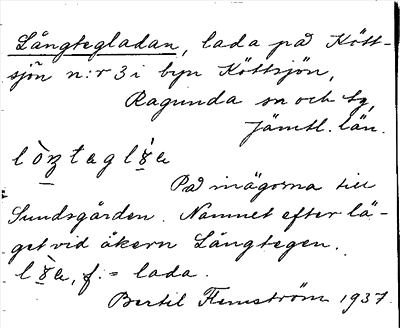 Långtegladan, lada på Kött-
sjön n:r 3 i byn Köttsjön,
Ragunda sn och tg,
Jämtl. län.
På inägorna till
Sundsgården. Namnet efter lä-
get vid åkern Långtegen.
f. = lada.
Bertil Flemström 1937.